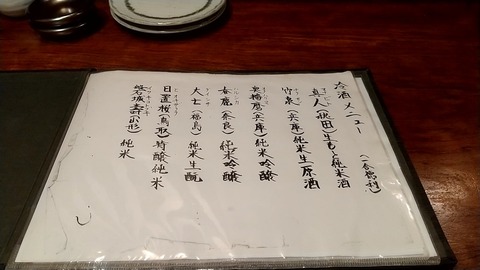 冷酒メニュー
(一合徳利)
真人(秋田)生もと純米酒
竹泉(兵庫)純米生原酒
奥播磨(兵庫)純米吟醸
春鹿(奈良)純米吟醸
大七(福島)純米生酛
日置桜(鳥取)特醸純米
純米